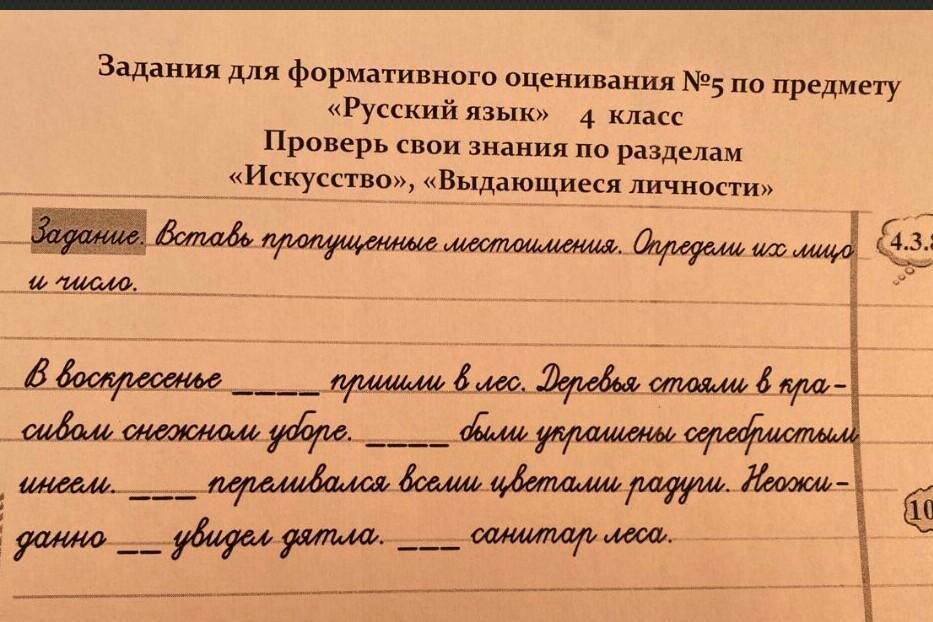 Задания для формативного оценивания №5 по предмету
«Русский язык» 4 класс
Проверь свои знания по разделам
«Искусство», «Выдающиеся личности»
Задание. Вставь пропущенные местоимения. Определи их лицо
и число.
4.3.8
В воскресенье ____ пришли в лес. Деревья стояли в кра-
сивом снежном уборе. ____ были украшены серебристым
инеем. ___ переливался всеми цветами радуги. Неожи-
данно __ увидел дятла. ___ санитар леса.
10